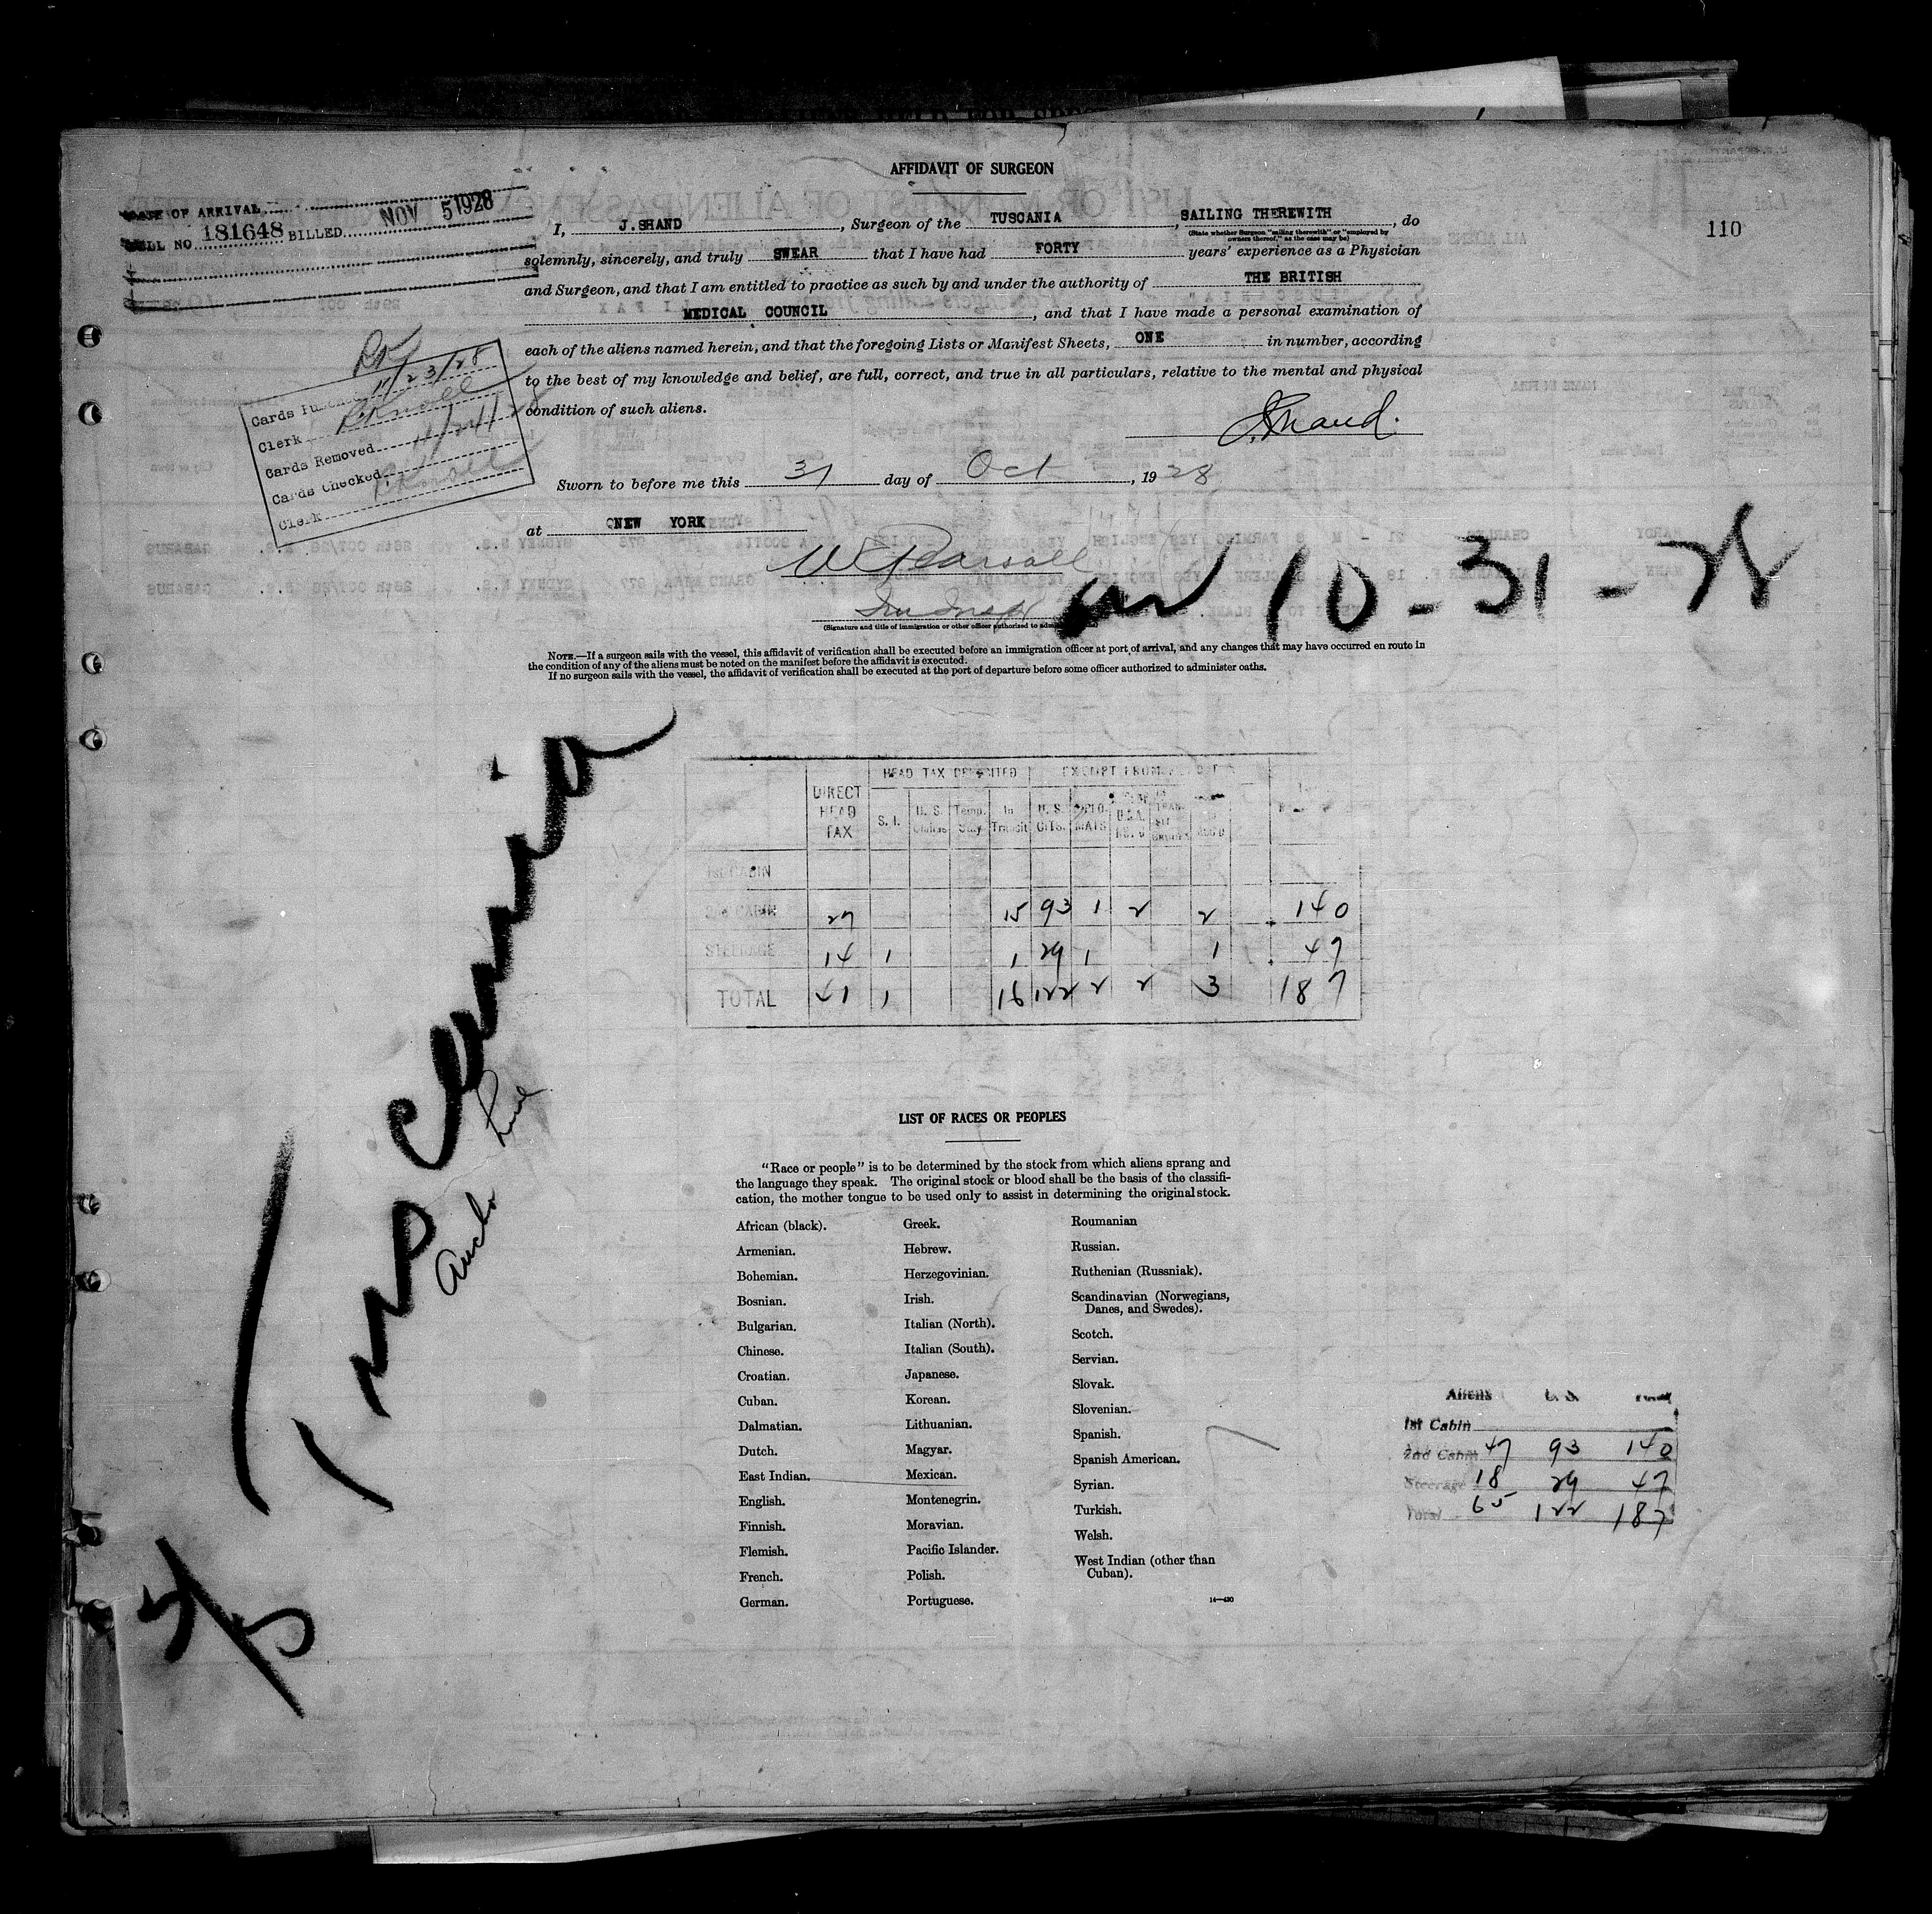 AFFIDAVIT OF SURGEON
DATE OF ARRIVAL
BILL NO. 181648 BILLED NOV 5 1928
110
I, J. SHAND, Surgeon of the TUSCANIA, SAILING THEREWITH, do
(State whether Surgeon "sailing therewith" or "employed by
owners thereof," as the case may be)
solemnly, sincerely, and truly SWEAR that I have had FORTY years' experience as a Physician
and Surgeon, and that I am entitled to practice as such by and under the authority of THE BRITISH
MEDICAL COUNCIL, and that I have made a personal examination of
each of the aliens named herein, and that the foregoing Lists or Manifest Sheets, ONE in number, according
to the best of my knowledge and belief, are full, correct, and true in all particulars, relative to the mental and physical
condition of such aliens.
J. Shand.
Cards Punched 11/23/28
Clerk
Cards Removed 11/24/28
Cards Checked
Clerk
Sworn to before me this 31 day of Oct, 1928
at NEW YORK
W Pearsall
Imm Inspr
(Signature and title of immigration or other officer authorized to
10-31-28
NOTE.—If a surgeon sails with the vessel, this affidavit of verification shall be executed before an immigration officer at port of arrival, and any changes that may have occurred en route in
the condition of any of the aliens must be noted on the manifest before the affidavit is executed.
If no surgeon sails with the vessel, the affidavit of verification shall be executed at the port of departure before some officer authorized to administer oaths.
Tuscania
Anchor Line
HEAD TAX DEPOSITED EXEMPT FROM
DIRECT HEAD TAX S. I. U. S. Temp. Stay In Transit U. S. CITS. DIPLO-MATS
1st CABIN
2nd CABIN 27 15 93 1 2 2 140
STEERAGE 14 1 1 29 1 1 47
TOTAL 41 1 16 122 2 2 3 187
LIST OF RACES OR PEOPLES
"Race or people" is to be determined by the stock from which aliens sprang and
the language they speak. The original stock or blood shall be the basis of the classifi-
cation, the mother tongue to be used only to assist in determining the original stock.
African (black).
Armenian.
Bohemian.
Bosnian.
Bulgarian.
Chinese.
Croatian.
Cuban.
Dalmatian.
Dutch.
East Indian.
English.
Finnish.
Flemish.
French.
German.
Greek.
Hebrew.
Herzegovinian.
Irish.
Italian (North).
Italian (South).
Japanese.
Korean.
Lithuanian.
Magyar.
Mexican.
Montenegrin.
Moravian.
Pacific Islander.
Polish.
Portuguese.
Roumanian
Russian.
Ruthenian (Russniak).
Scandinavian (Norwegians,
Danes, and Swedes).
Scotch.
Servian.
Slovak.
Slovenian.
Spanish.
Spanish American.
Syrian.
Turkish.
Welsh.
West Indian (other than
Cuban).
14—430
Aliens U. S. Total
1st Cabin
2nd Cabin 47 93 140
Steerage 18 29 47
Total 65 122 187